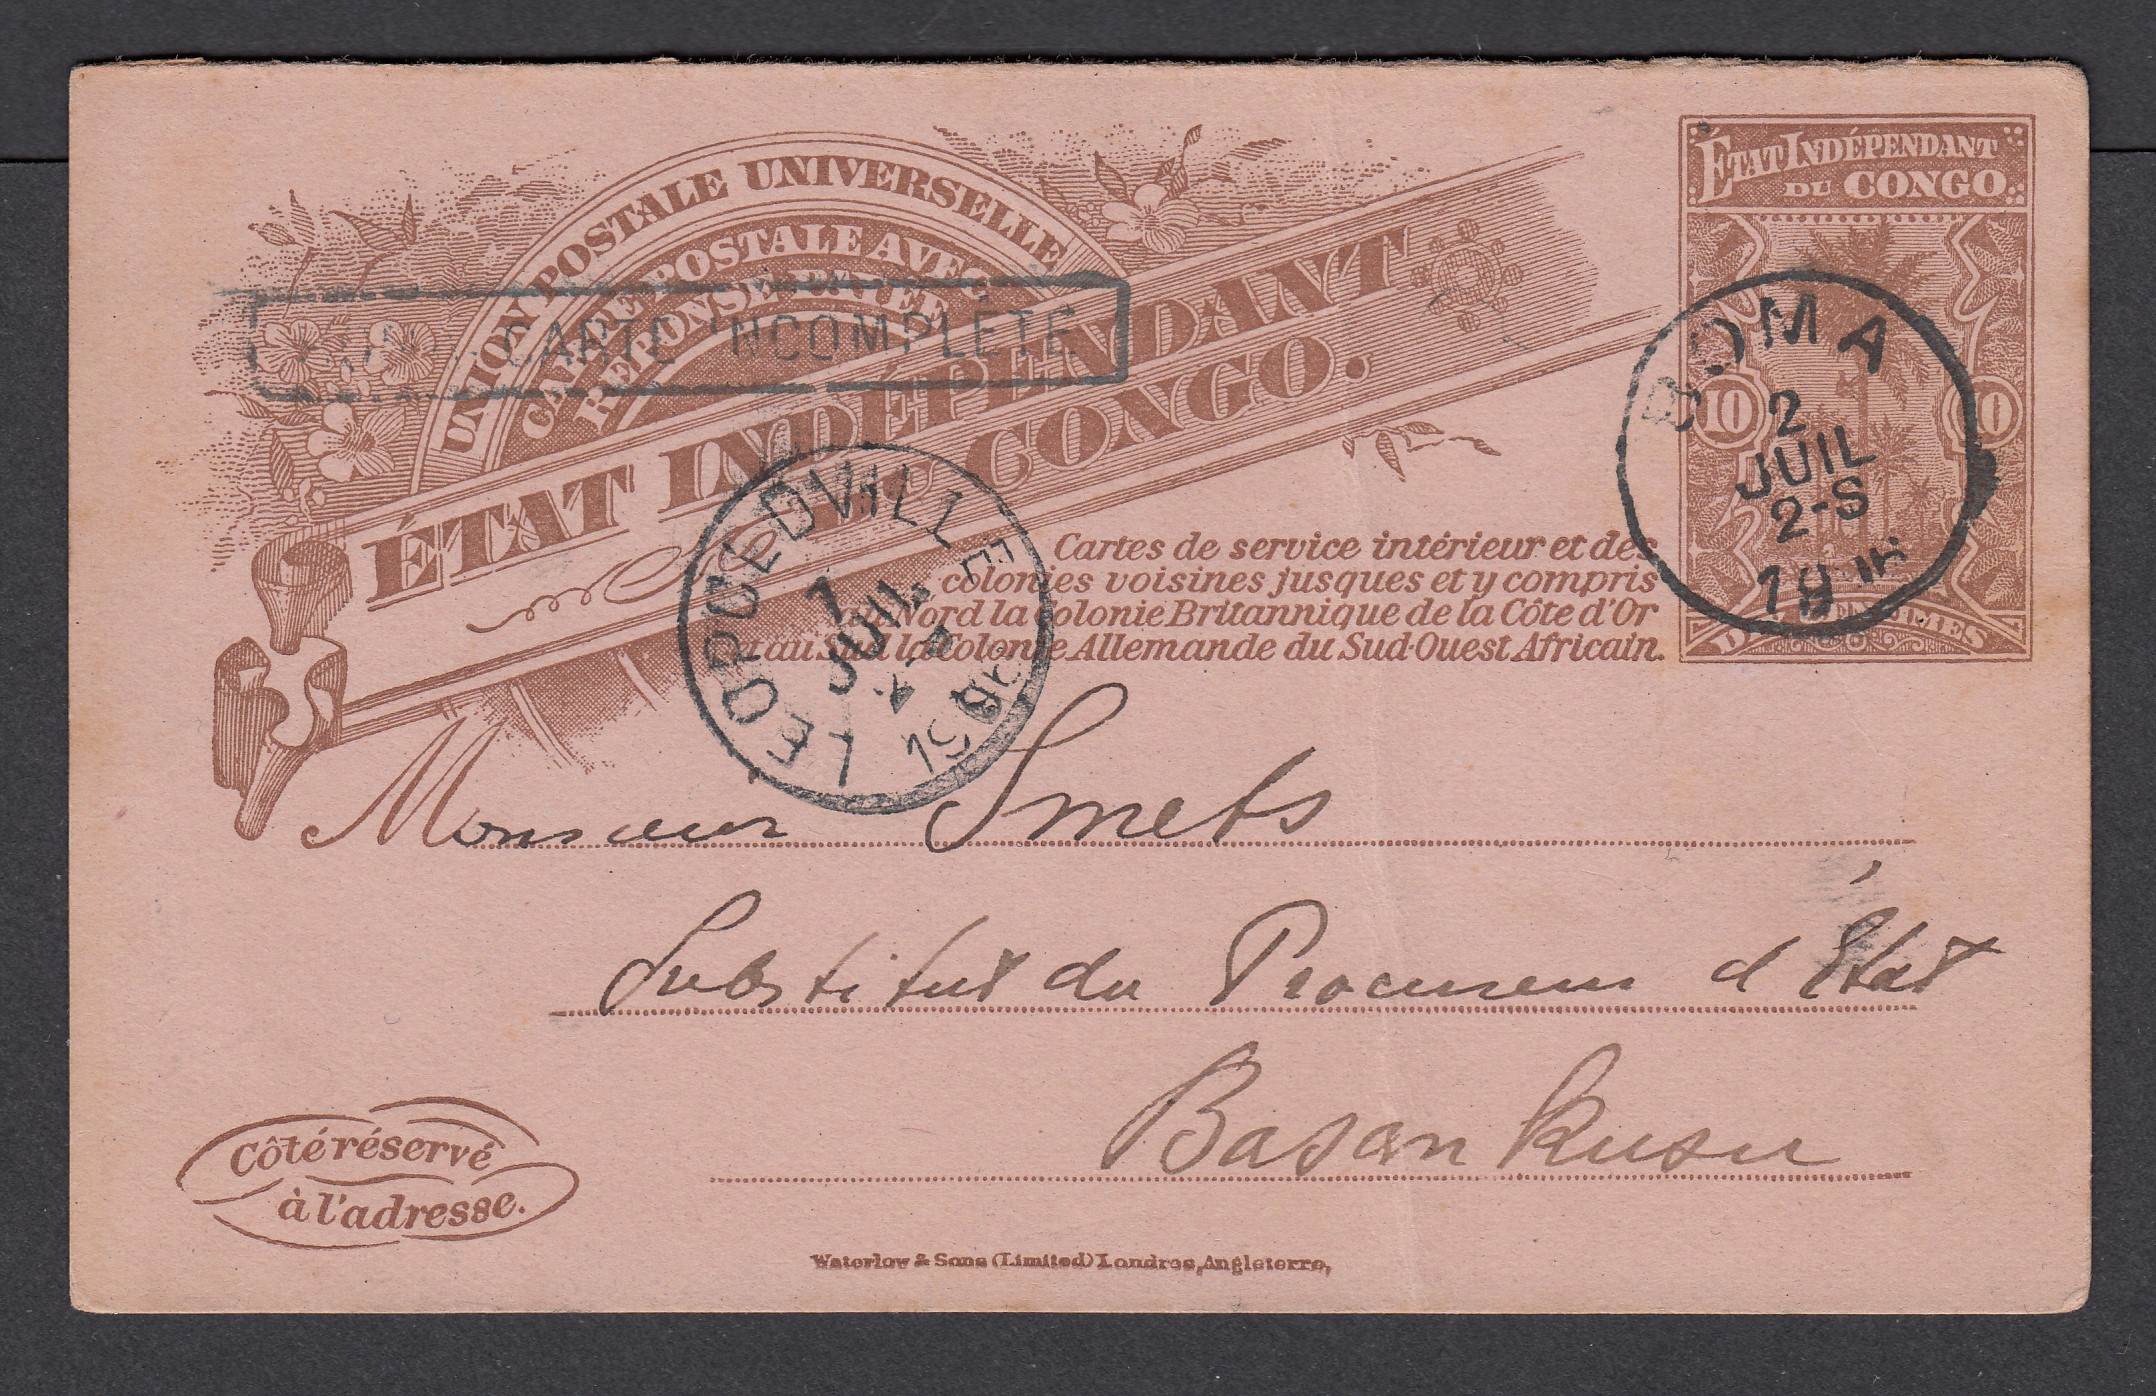 UNION POSTALE UNIVERSELLE
CARTE POSTALE AVEC
RÉPONSE PAYÉE
ÉTAT INDÉPENDANT
DU CONGO.
CARTE INCOMPLÈTE
ÉTAT INDÉPENDANT
DU CONGO
10 10
DIX CENTIMES
BOMA
2
JUIL
2-S
19
LEOPOLDVILLE
JUIL
Cartes de service intérieur et des
colonies voisines jusques et y compris
au Nord la Colonie Britannique de la Côte d'Or
et au Sud la Colonie Allemande du Sud-Ouest Africain.
Monsieur Smets
Substitut du Procureur d'État
Basankusu
Côté réservé
à l'adresse.
Waterlow & Sons (Limited) Londres, Angleterre,